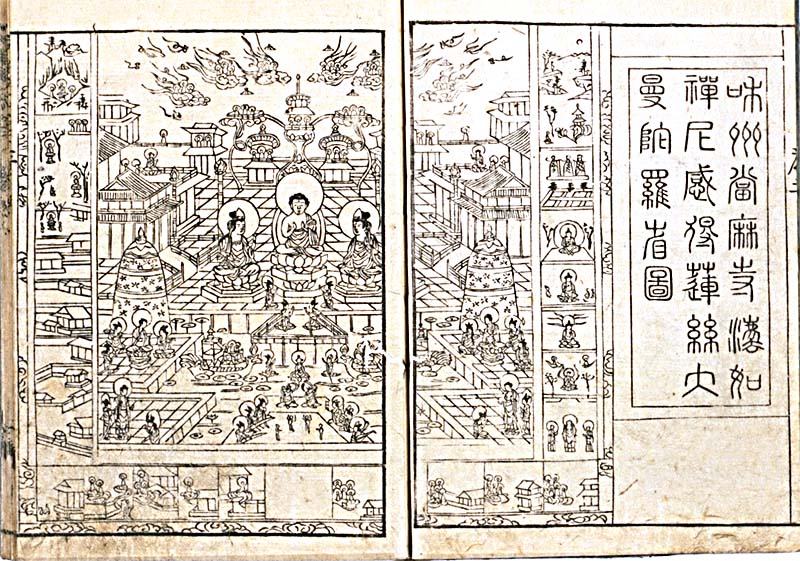 和州當麻寺法如
禪尼感得蓮絲大
曼陀羅省圖